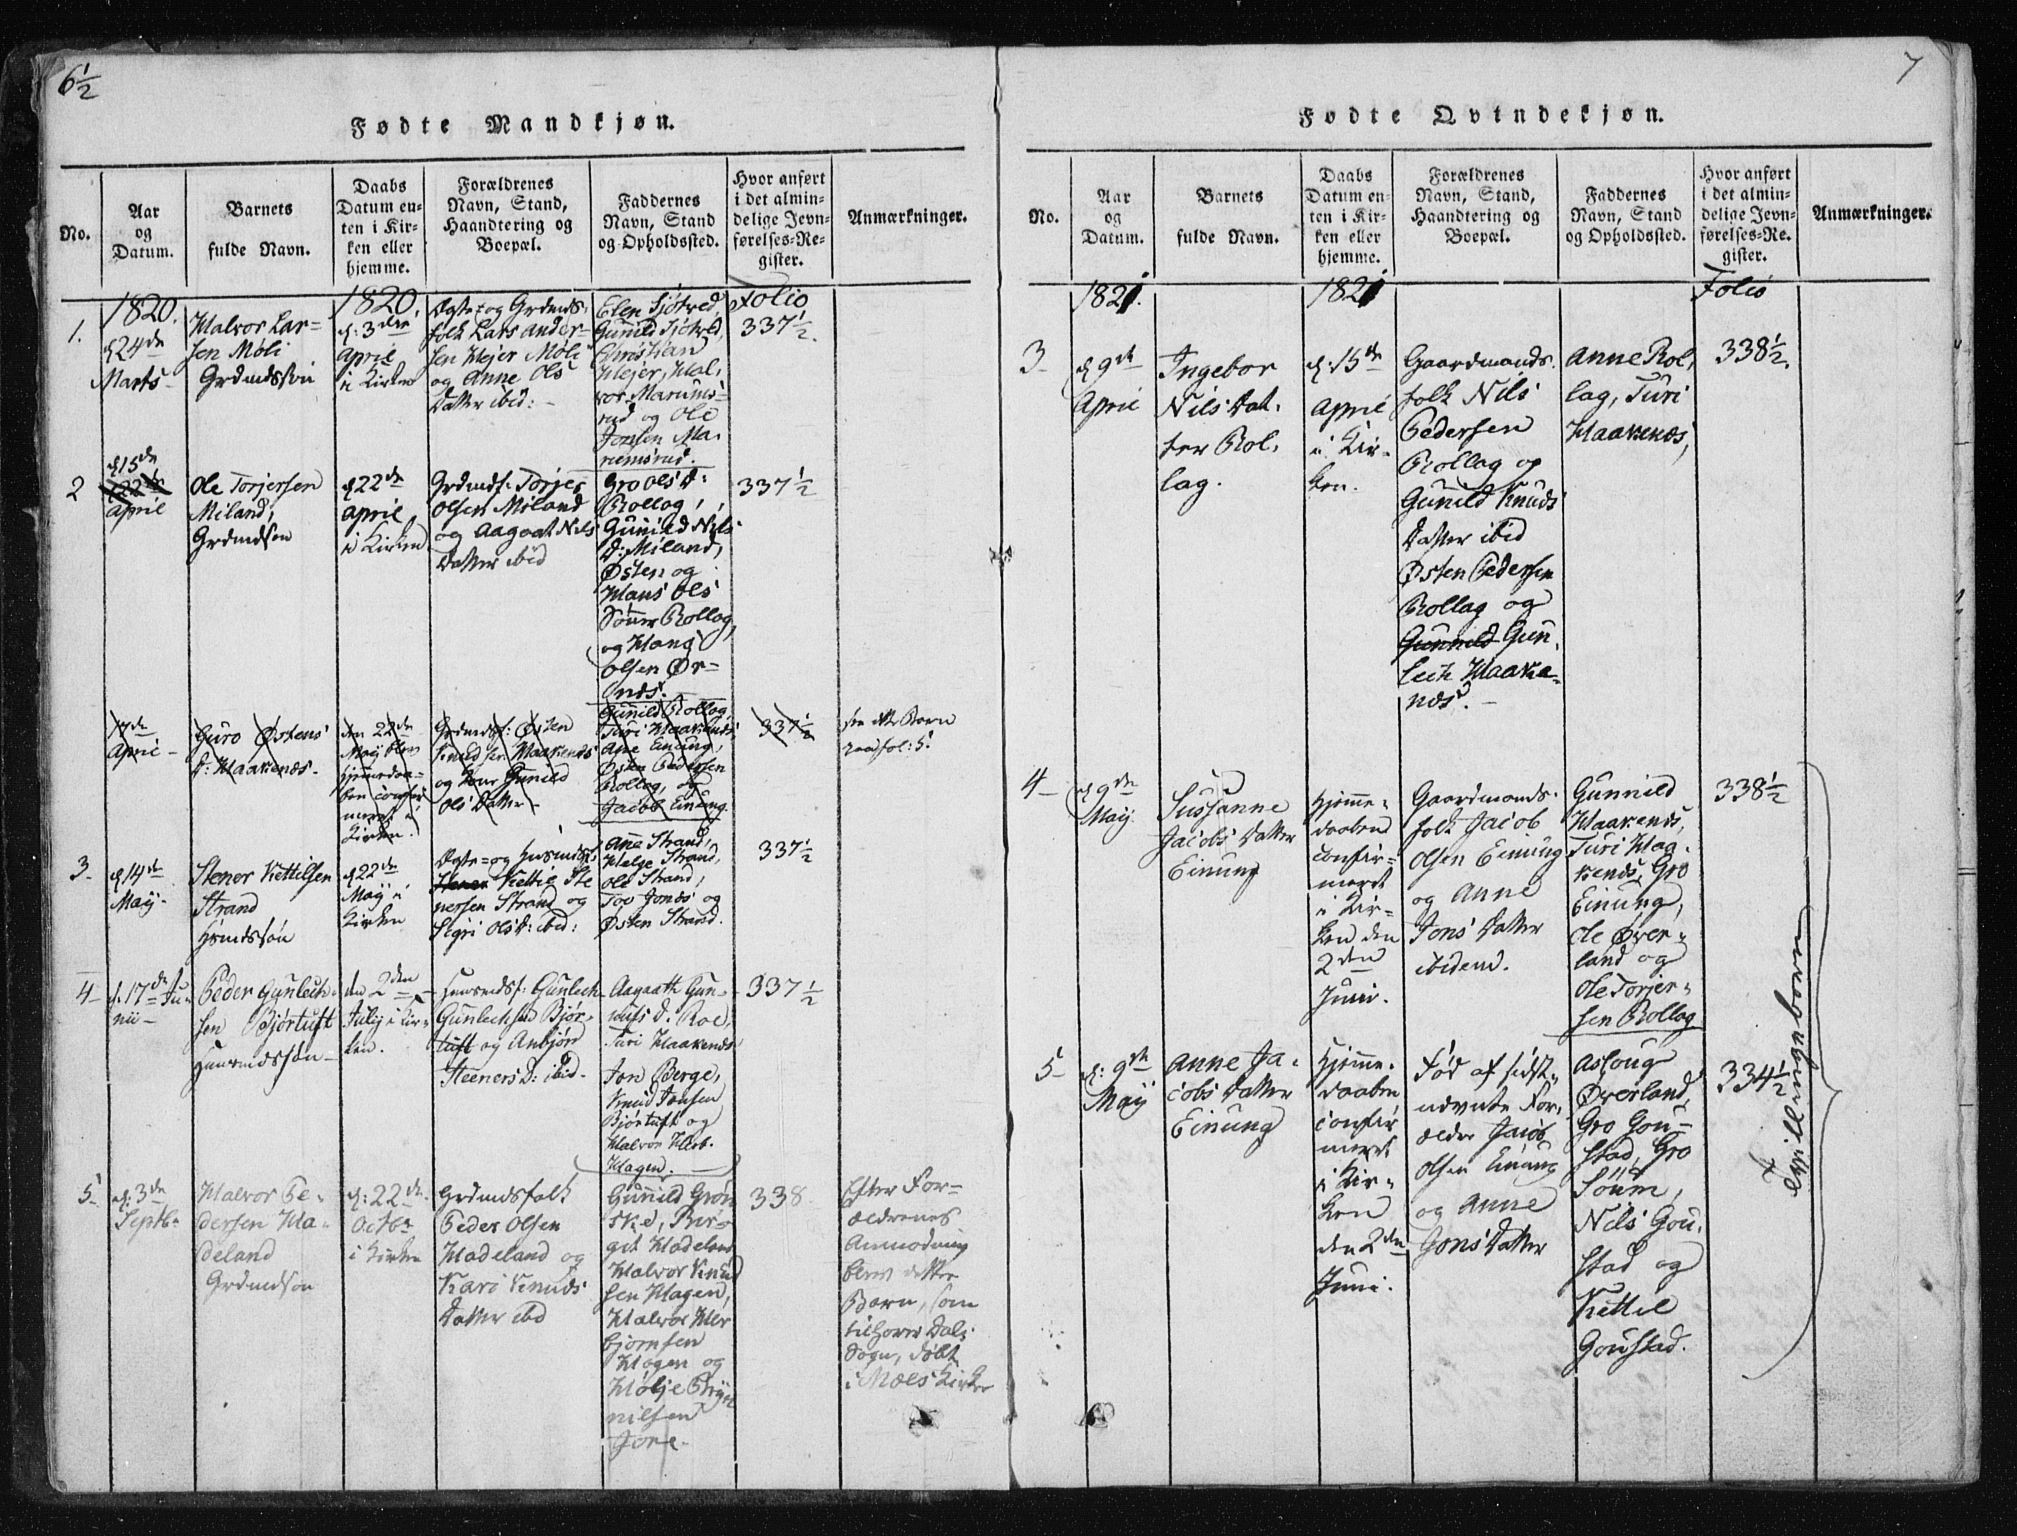 6 1/2
Fødte Mandkjøn.
No.
Aar
og
Datum.
Barnets
fulde Navn.
Daabs
Datum en-
ten i Kir-
ken eller
hjemme.
Forældrenes
Navn, Stand,
Haandtering og
Boepæl.
Faddernes
Navn, Stand
og Opholdssted.
Hvor anført
i det almin-
delige Jevn-
førelses-Re-
gister.
Anmærkninger.
1.
1820.
d 24de
Marts
Halvor Lar-
sen Møli
Grdmdssøn
1820
d: 3die
April
i Kirken
Ægte- og Grdmds-
folk Lars Ander-
sen Mejer Møli
og Anne Ols
Datter ibid:
Elen Sjøtved
Gunild Sjøtved,
Christian
Mejer, Hal-
vor Marums-
rud og Ole
Jonsen Ma-
rumsrud.
Folio
337 1/2.
2
d 15de
April
Ole Torjersen
Miland,
Grdmdsøn
d 22de
April
i Kirken
Grdmdsf: Torjer
Olsen Miland
og Aagaat Nils
Datter ibid
Gro Ols D:
Rollag,
Gunild Nils
D: Miland,
Østen og
Hans Ols
Sønner Rollag,
og Hans
Olsen Ør-
næs.
337 1/2
7de
April
Guro Østens
D: Haakenæs
den 22de
May blev
hjemmedaa-
ben confir
meret i
Kirken.
Grdmdsf: Østen
Knudsen Haakenæs
og Gunild
Ols Datter
Gunild Rollag
Turi Haakenæs,
Ane Einung,
Østen Pedersen
Rollag, og
Jacob Einung.
337 1/2
see dette Barn
fol: 5.
3
d 14de
May
Stener Kettilsen
Strand
Hsmdssøn
d 22de
May i
Kirken
Ægte- og Husmdsf:
Stener Kettil Ste
nersen Strand og
Sigri Ols D: ibid:
Ane Strand,
Helge Strand,
Ole Strand,
Tov Jonds og
Østen Strand.
337 1/2
4
d. 17de Ju-
nii
Peder Gunlech-
sen Bjørtuft
Huusmdssøn
den 2den
July i Kir-
ken.
Huusmdsf: Gunlech
Gunlechsen Bjør-
tuft og Anbjør
Steeners D: ibid.
Aagaath Gun-
nufs D. Roe,
Turi Haakenæs
Jon Berge,
Knud Jonsen
Bjørtuft og
Halvor Herb.
Hagen.
337 1/2
5
d: 3de
Septbr
Halvor Pe-
dersen Ha-
deland
Grdmdsøn
d: 22de
Octbr
i Kirken
Grdmdsfolk
Peder Olsen
Hadeland og
Kari Knuds
Datter ibd
Gunnild Grøn
skei, Bir-
git Hadeland
Halvor Knud
sen Hagen,
Halvor Her
bjørnsen
Hagen og
Helje Bryn
nilsen
Jore
338
Efter For-
ældrenes
Anmodning
blev dette
Barn, som
tilhører Dals
Sogn, døbt
i Mæls Kirke
7
Fødte Qvindekjøn.
No.
Aar
og
Datum.
Barnets
fulde Navn.
Daabs
Datum en-
ten i Kir-
ken eller
hjemme.
Forældrenes
Navn, Stand,
Haandtering og
Boepæl.
Faddernes
Navn, Stand
og Opholdssted.
Hvor anført
i det almin-
delige Jevn-
førelses-Re-
gister.
Anmærkninger.
1821.
1821
Folio
3
d 9de
April
Ingebor
Nils Dat-
ter Rol-
lag.
d: 15de
April
i Kir-
ken.
Gaardmands-
folk Nils
Pedersen
Rollag og
Gunild Knuds
Datter ibid
Østen Pedersen
Rollag og
Gunnild Gun-
leik Haake-
næs.
Anne Rol-
lag, Turi
Haakenæs,
338 1/2.
4
d 9de
May
Sussanne
Jacobs Datter
Einung
Hjemme-
daaben
confir-
meret
i Kir-
ken den
2den
Juni.
Gaardmands-
folk Jacob
Olsen Einung
og Anne
Jons Datter
ibidem.
Gunnild
Haakenæs,
Turi Haa-
kenæs, Gro
Einung,
Ole Øver-
land og
Ole Torjer-
sen Rollag
338 1/2
5
d: 9de
May
Anne Ja-
cobs Datter
Einung
Hjemme-
daaben
confir
meret
i Kir-
ken
den 2den
Juni.
Fød af sidst-
nævnte For-
ældre Jacob
Olsen Einung
og Anne
Jons Datter
Asloug
Øverland,
Gro Gou-
stad, Gro
Søum,
Nils Gou-
stad og
Kittil
Goustad.
334 1/2
Tvillingebørn